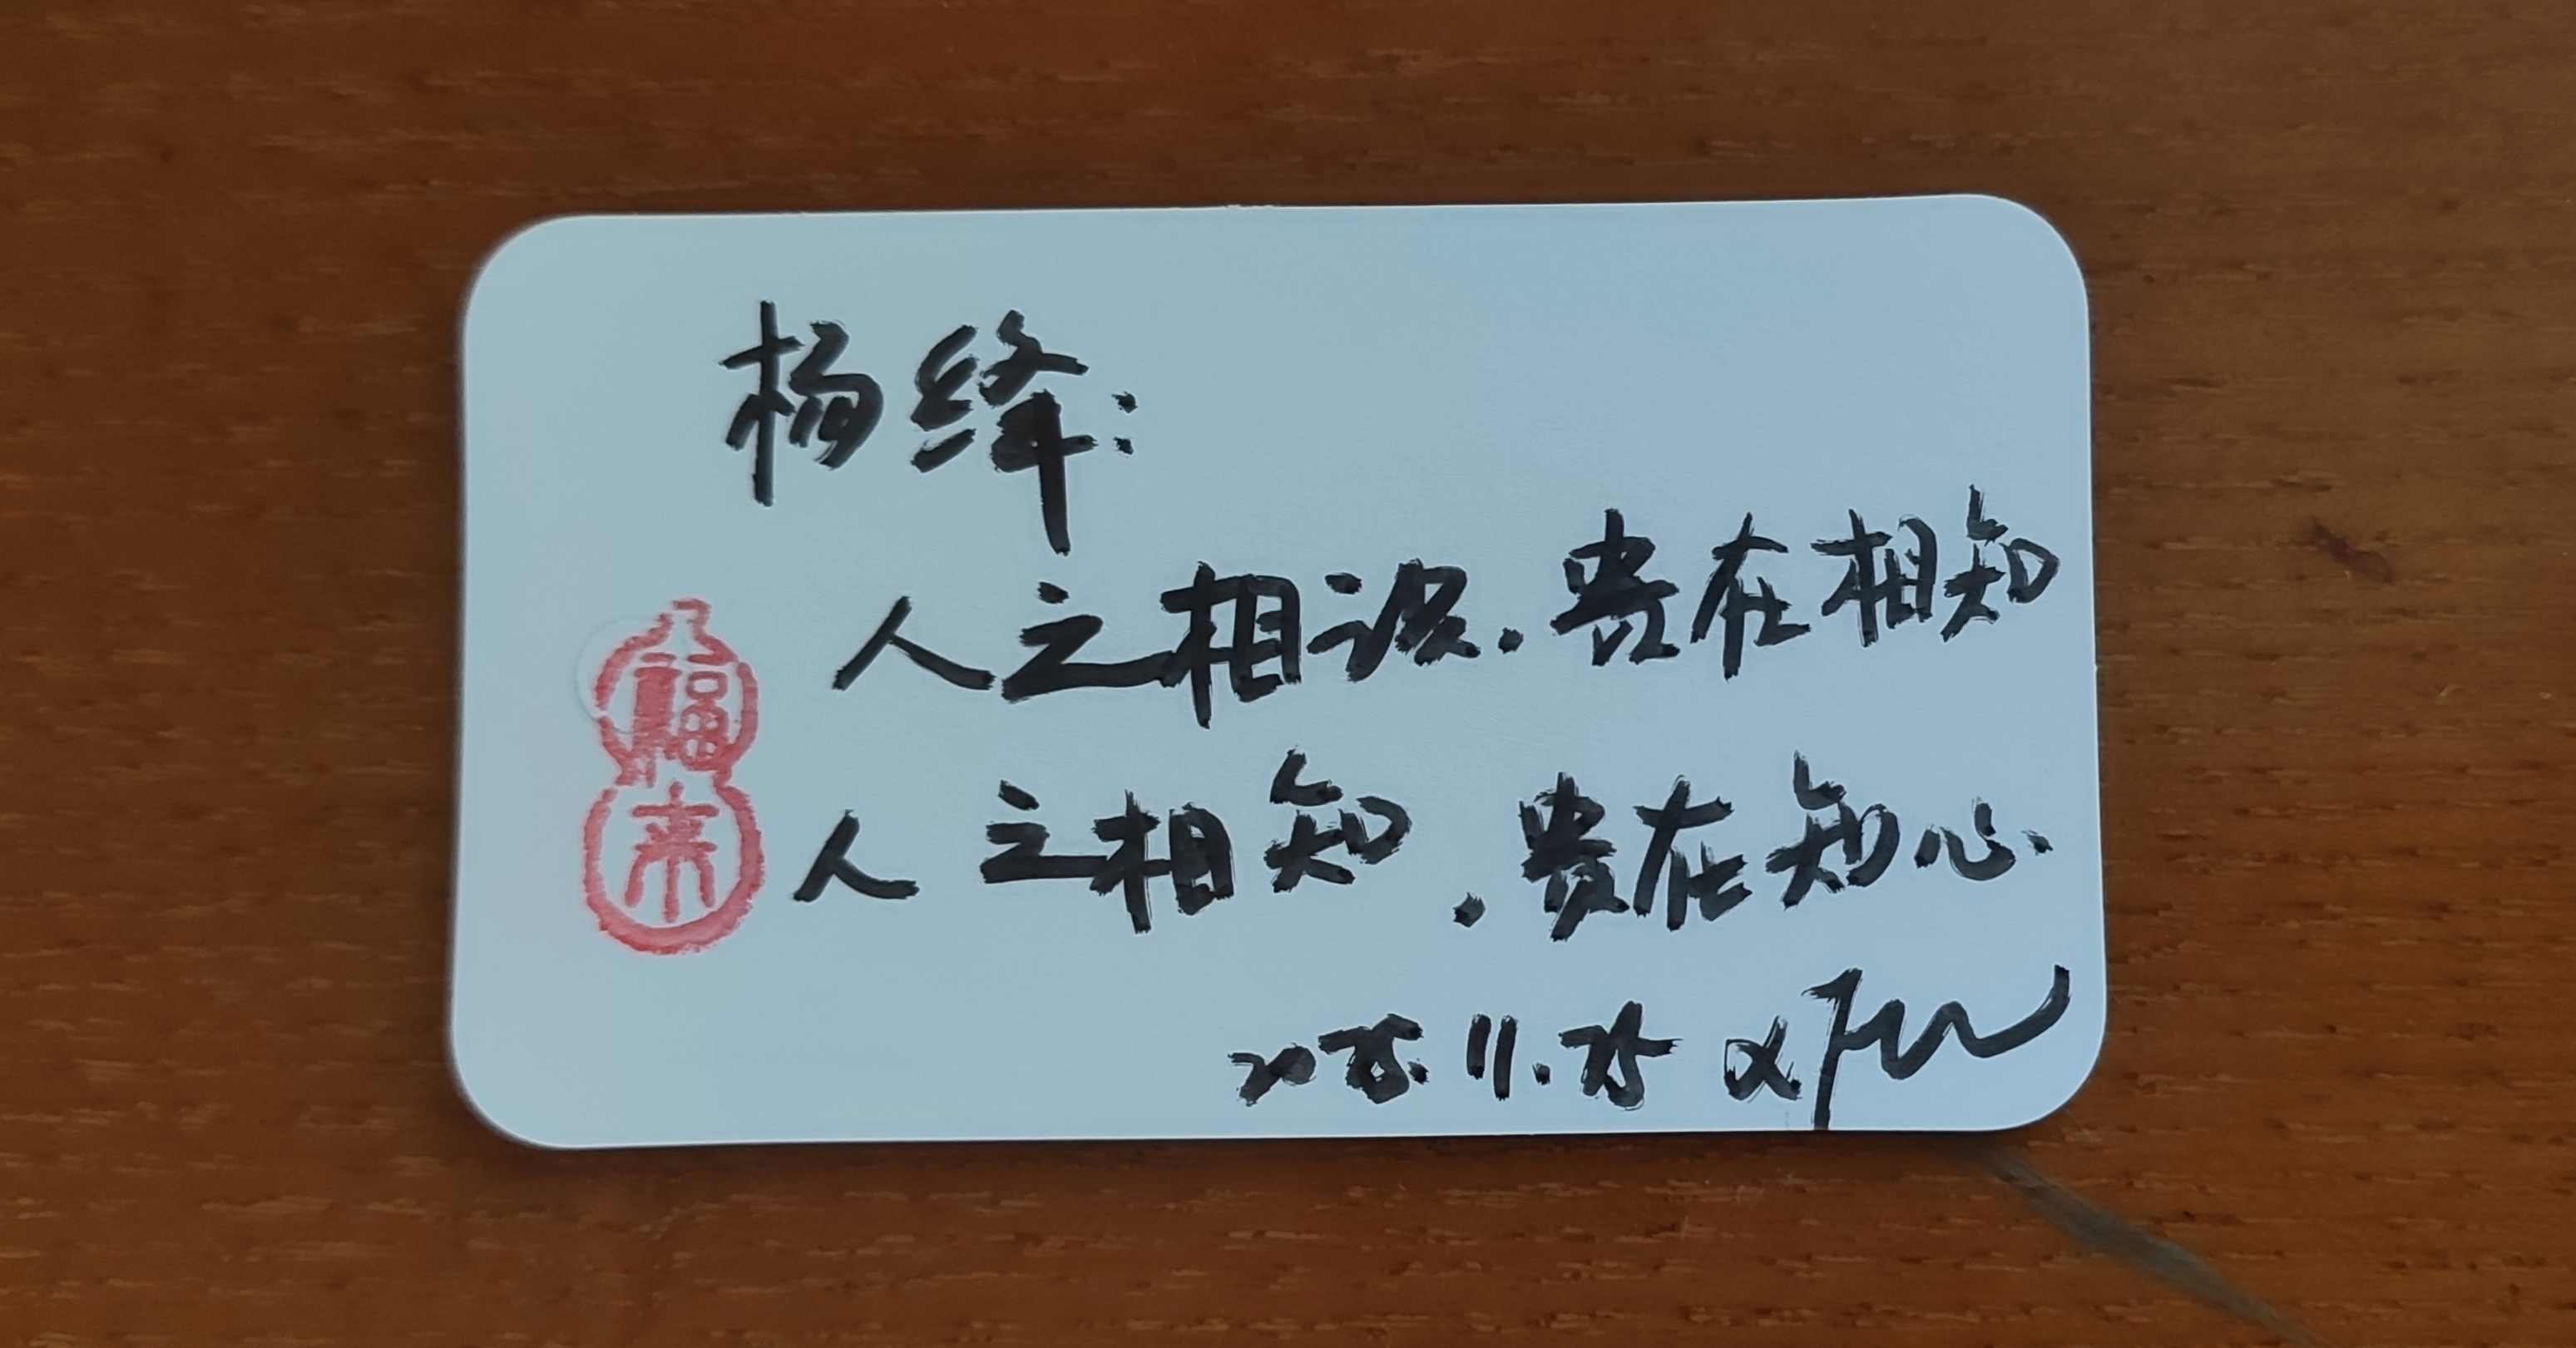 杨绛:
人之相识.贵在相知
人之相知.贵在知心.
2025.11.25
福
来